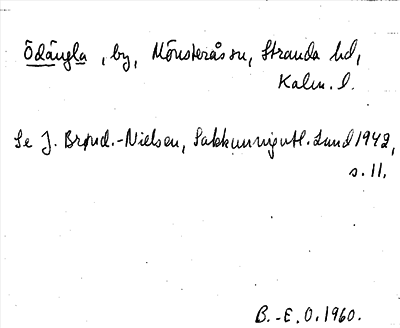 Ödängla, by, Mönsterås sn, Stranda hd,
Kalm. l.
Se J. Brønd.-Nielsen, Sakkunnigutl. Lund 1942,
s. 11.
B.-E.O. 1960.